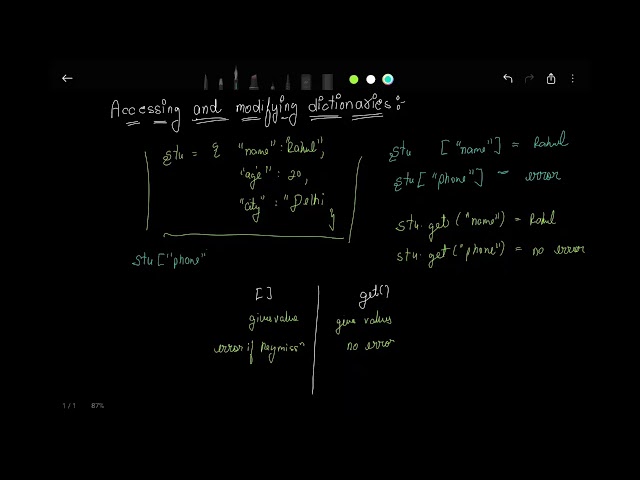 Accessing and modifying dictionaries:-
stu = { "name" : "Rahul",
"age" : 20,
"city" : "Delhi
}
stu ["name"] = Rahul
stu["phone"] = error
stu.get ("name") = Rahul
stu.get ("phone") = no error
stu["phone"
[ ] get()
gives value gave values
error if key miss no error
1 / 1 87%